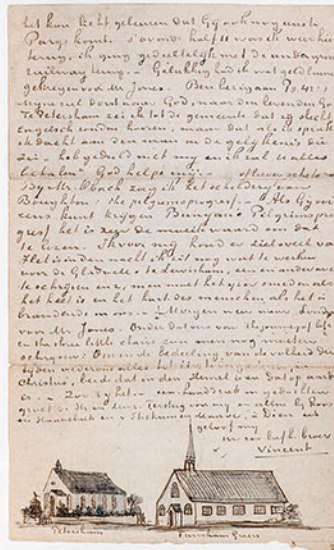 het kon licht gebeuren dat Gij ook nog eens te
Parijs komt. s'avonds half 11 was ik weer hier
terug, ik ging gedeeltelijk met de underground
railway terug. - Gelukkig had ik wat geld
gekregen voor Mr Jones. Ben bezig aan Ps. 42:1
Mijne ziel dorst naar God, naar den levenden God
Te Petersham zei ik tot de gemeente dat zij slecht
Engelsch zouden hooren, maar dat als ik sprak
ik dacht aan den man in de gelijkenis die
zei - heb geduld met mij en ik zal U alles
betalen" God helpe mij. -
By Mr Obach zag ik het schilderij van
Boughton: the pilgrimsprogress. - Als Gij ooit
eens kunt krijgen Bunyan's Pilgrimspro
gress het is zeer de moeite waard om dat
te lezen. Ik voor mij houd er zielsveel van
Het is in den nacht ik zit nog wat te werken
voor de Gladwells te Lewisham, een en ander over
te schrijven enz, men moet het yzer smeden als
het heet is en het hart des menschen als het is
brandende in ons. - Morgen weer naar Londen
voor Mr. Jones. Onder dat vers van The journey of life
en the three little chairs zou men nog moeten
schrijven: Om in de bedeeling van de volheid der
tijden wederom alles tot één te
Christus, beide dat in den Hemel is en dat op aarde
is. - Zoo zy het. - een handdruk in gedachten
groet Mr en Mevr. Tersteeg voor mij en allen bij Roos
en Haanebeek en v Stockum à Dieu
geloof mij
uw zoo liefh. broer
Vincent
Petersham
Turnham Green